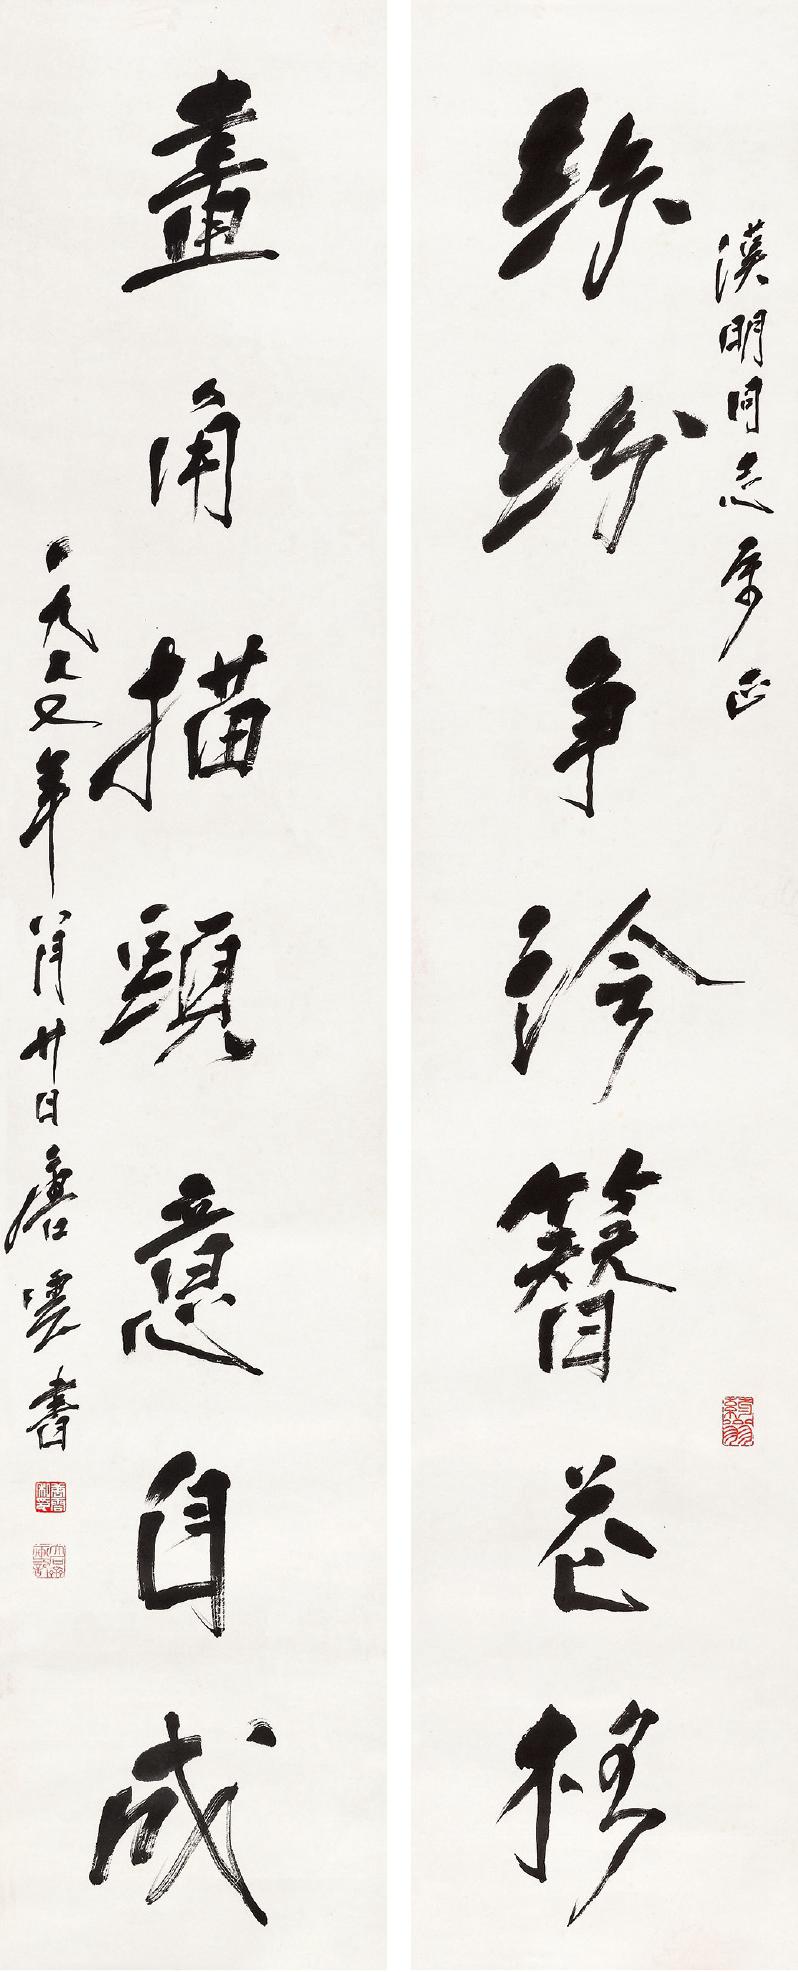 漢明同志属正
紛紛争診簪花格
畫角描頭意自成
一九七七年八月廿日唐雲書